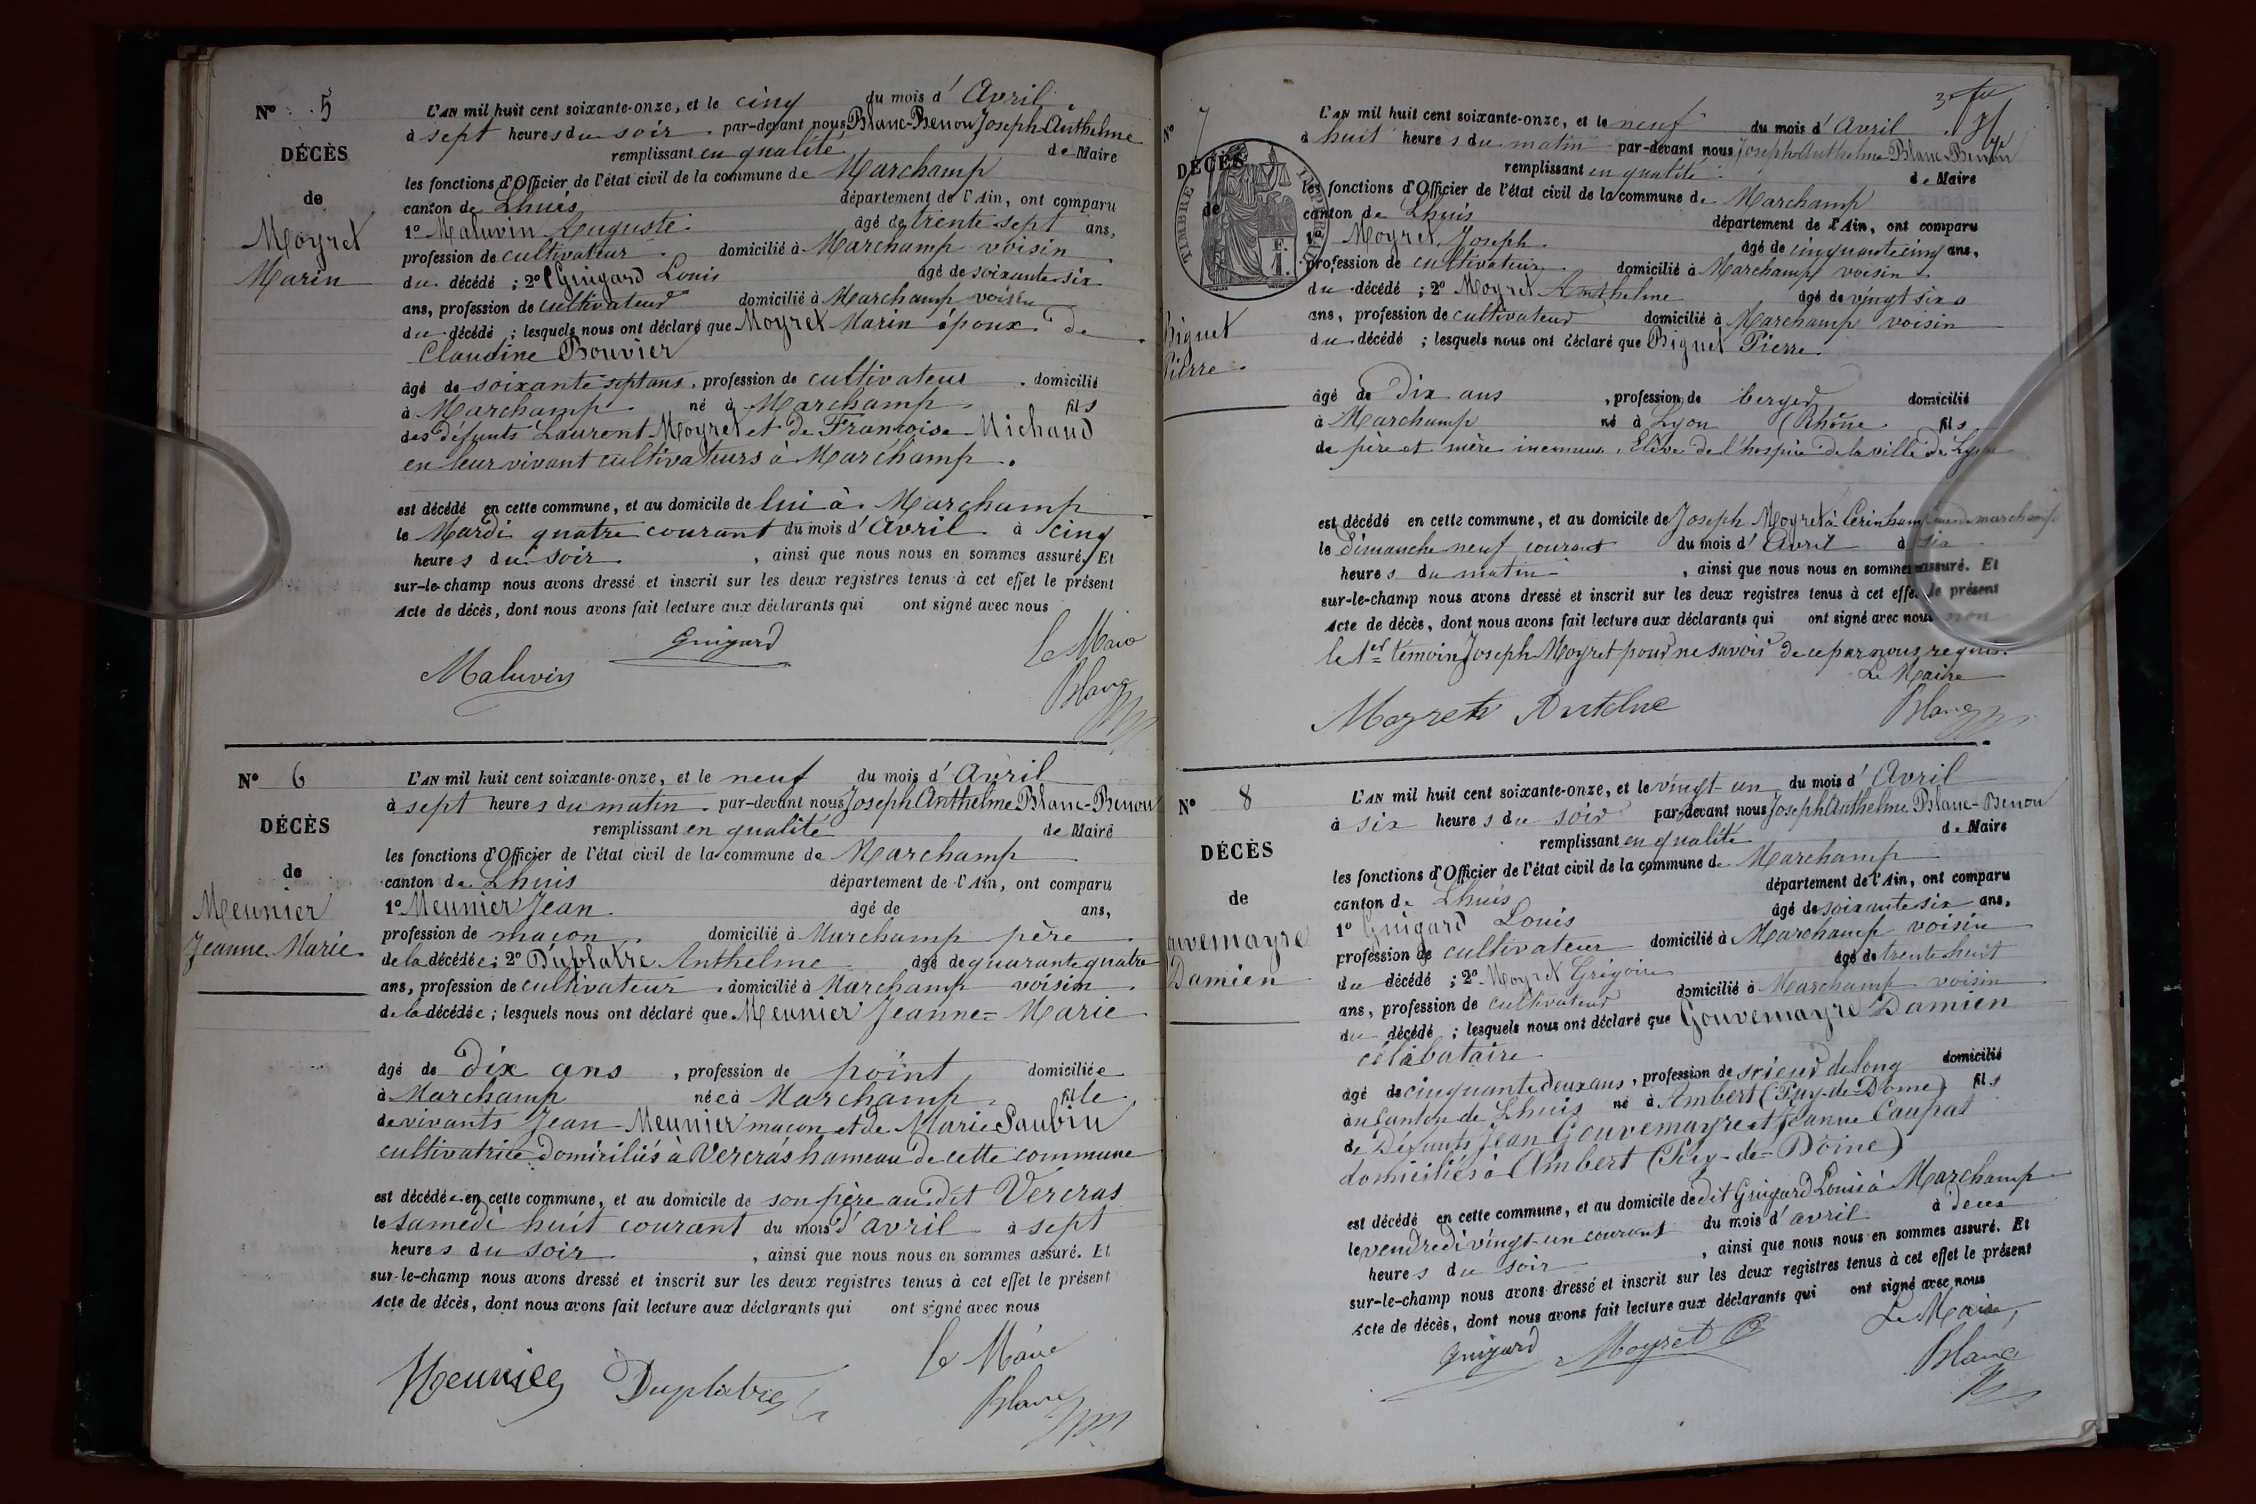 N° 5
DÉCÈS
de
Moyret
Marin
L'AN mil huit cent soixante-onze, et le cinq du mois d'Avril
à sept heures du soir par-devant nous Blanc-Benon Joseph Anthelme
remplissant en qualité de Maire
les fonctions d'Officier de l'état civil de la commune de Marchamp
canton de Lhuis département de l'Ain, ont comparu
1° Maluvin Auguste âgé de trente sept ans,
profession de cultivateur domicilié à Marchamp voisin
du décédé ; 2° Guigard Louis âgé de soixante six
ans, profession de cultivateur domicilié à Marchamp voisin
du décédé ; lesquels nous ont déclaré que Moyret Marin époux de
Claudine Bouvier
âgé de soixante sept ans, profession de cultivateur domicilié
à Marchamp né à Marchamp fils
des défunts Laurent Moyret et de Françoise Michaud
en leur vivant cultivateurs à Marchamp.
est décédé en cette commune, et au domicile de lui à Marchamp
le Mardi quatre courant du mois d'Avril à cinq
heures du soir, ainsi que nous nous en sommes assuré, Et
sur-le-champ nous avons dressé et inscrit sur les deux registres tenus à cet effet le présent
Acte de décès, dont nous avons fait lecture aux déclarants qui ont signé avec nous
Maluvin Guigard Le Maire
Blanc
N° 6
DÉCÈS
de
Meunier
Jeanne Marie
L'AN mil huit cent soixante-onze, et le neuf du mois d'Avril
à sept heures du matin par-devant nous Joseph Anthelme Blanc-Benon
remplissant en qualité de Maire
les fonctions d'Officier de l'état civil de la commune de Marchamp
canton de Lhuis département de l'Ain, ont comparu
1° Meunier Jean âgé de ans,
profession de maçon domicilié à Marchamp père
de la décédée ; 2° Duplatre Anthelme âgé de quarante quatre
ans, profession de cultivateur domicilié à Marchamp voisin
de la décédée ; lesquels nous ont déclaré que Meunier Jeanne-Marie
âgé de Dix ans, profession de point domiciliée
à Marchamp née à Marchamp fille
de vivants Jean Meunier maçon et de Marie Saubin
cultivatrice domiciliés à Vercras hameau de cette commune
est décédée en cette commune, et au domicile de son père audit Vercras
le samedi huit courant du mois d'avril à sept
heures du soir, ainsi que nous nous en sommes assuré. Et
sur-le-champ nous avons dressé et inscrit sur les deux registres tenus à cet effet le présent
Acte de décès, dont nous avons fait lecture aux déclarants qui ont signé avec nous
Meunier Duplatre Le Maire
Blanc
N° 7
DÉCÈS
de
TIMBRE IMPERIAL
Biguet
Pierre
L'AN mil huit cent soixante-onze, et le neuf du mois d'Avril
à huit heures du matin par-devant nous Joseph Anthelme Blanc-Benon
remplissant en qualité de Maire
les fonctions d'Officier de l'état civil de la commune de Marchamp
canton de Lhuis département de l'Ain, ont comparu
1° Moyret Joseph âgé de cinquante cinq ans,
profession de cultivateur domicilié à Marchamp voisin
du décédé ; 2° Moyret Anthelme âgé de vingt six
ans, profession de cultivateur domicilié à Marchamp voisin
du décédé ; lesquels nous ont déclaré que Biguet Pierre
âgé de Dix ans, profession de berger domicilié
à Marchamp né à Lyon (Rhône fils
de père et mère inconnus. Elève de l'hospice de la ville de Lyon
est décédé en cette commune, et au domicile de Joseph Moyret à Cerin hameau de marchamp
le Dimanche neuf courant du mois d'Avril à six
heures du matin, ainsi que nous nous en sommes assuré. Et
sur-le-champ nous avons dressé et inscrit sur les deux registres tenus à cet effet le présent
Acte de décès, dont nous avons fait lecture aux déclarants qui ont signé avec nous non
le 1er témoin Joseph Moyret pour ne savoir de ce par nous requis.
Le Maire
Moyret Blanc
N° 8
DÉCÈS
de
Gouvemayre
Damien
L'AN mil huit cent soixante-onze, et le vingt-un du mois d'Avril
à six heures du soir par-devant nous Joseph Anthelme Blanc-Benon
remplissant en qualité de Maire
les fonctions d'Officier de l'état civil de la commune de Marchamp
canton de Lhuis département de l'Ain, ont comparu
1° Guigard Louis âgé de soixante six ans,
profession de cultivateur domicilié à Marchamp voisin
du décédé ; 2° Moyret Grégoire âgé de trente huit
ans, profession de cultivateur domicilié à Marchamp voisin
du décédé ; lesquels nous ont déclaré que Gouvemayre Damien
célibataire
âgé de cinquante deux ans, profession de scieur de long domicilié
au Canton de Lhuis né à Ambert (Puy-de-Dome) fils
de Défunts Jean Gouvemayre et Jeanne Caupat
domiciliés à Ambert (Puy-de-Dôme)
est décédé en cette commune, et au domicile de dit Guigard Louis à Marchamp
le vendredi vingt-un courant du mois d'avril à deux
heures du soir, ainsi que nous nous en sommes assuré. Et
sur-le-champ nous avons dressé et inscrit sur les deux registres tenus à cet effet le présent
Acte de décès, dont nous avons fait lecture aux déclarants qui ont signé avec nous
Guigard Moyret G Le Maire
Blanc